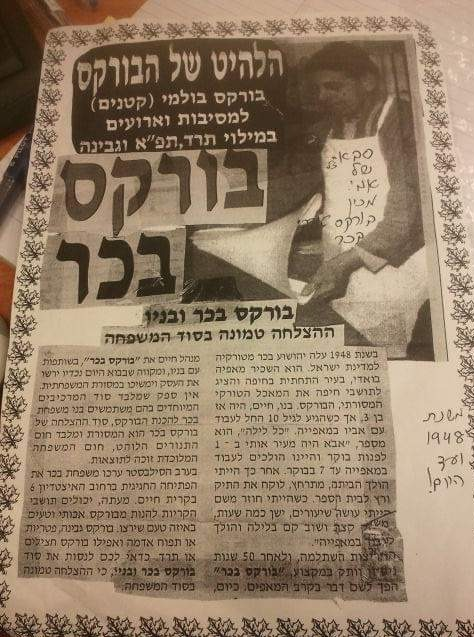 הלהיט של הבורקס
בורקס בולמי (קטנים)
למסיבות וארועים
במילוי תרד, תפ״א וגבינה
בורקס
בכר
סבא
של
אמי
מכין
בורקס
בכר
בורקס בכר ובניו
ההצלחה טמונה בסוד המשפחה
בשנת 1948 עלה יהושוע בכר מטורקיה
למדינת ישראל. הוא השכיר מאפיה
בואדי, בעיר התחתית בחיפה והציג
לתושבי חיפה את המאכל הטורקי
המסורתי, הבורקס. בנו, חיים, היה אז
בן 3 אך כשהגיע לגיל 10 החל לעבוד
עם אביו במאפייה. "כל לילה", הוא
מספר, "אבא היה מעיר אותי ב - 1
לפנות בוקר והיינו הולכים לעבוד
במאפייה עד 7 בבוקר. אחר כך הייתי
הולך הביתה, מתרחץ, לוקח את התיק
ורץ לבית הספר. כשהייתי חוזר משם
הייתי עושה שיעורים, ישן כמה שעות,
קצת ושוב קם בלילה והולך
לעבוד במאפייה".
החריצות השתלמה, ולאחר 50 שנות
נסיון וותק במקצוע, "בורקס בכר"
הפך לשם דבר בקרב המאפים. כיום,
מנהל חיים את "בורקס בכר", בשותפות
עם בניו, ומקווה שבבוא היום נכדיו ירשו
את העסק וימשיכו במסורת המשפחתית.
אין ספק שמלבד סוד המרכיבים
המיוחדים בהם משתמשים בני משפחת
בכר להכנת הבורקס, סוד ההצלחה של
בורקס בכר הוא המסורת ומלבד חום
התנורים הלוהט, חום המשפחה
המלוכדת זוכה לתוצאות.
בערב הסילבסטר ערכו משפחת בכר את
הפתיחה החגיגית ברחוב האיצטדיון 6
בקרית חיים. מעתה, יכולים תושבי
הקריות להנות מבורקס אמיתי וטעים
באיזה טעם שירצו. בורקס גבינה, פטריות
או תפוח אדמה ואפילו בורקס חצילים
או תרד. כדאי לכם לנסות את סוד
בורקס בכר ובניו, כי ההצלחה טמונה
בסוד המשפחה.
משנת
1948
ועד
היום!